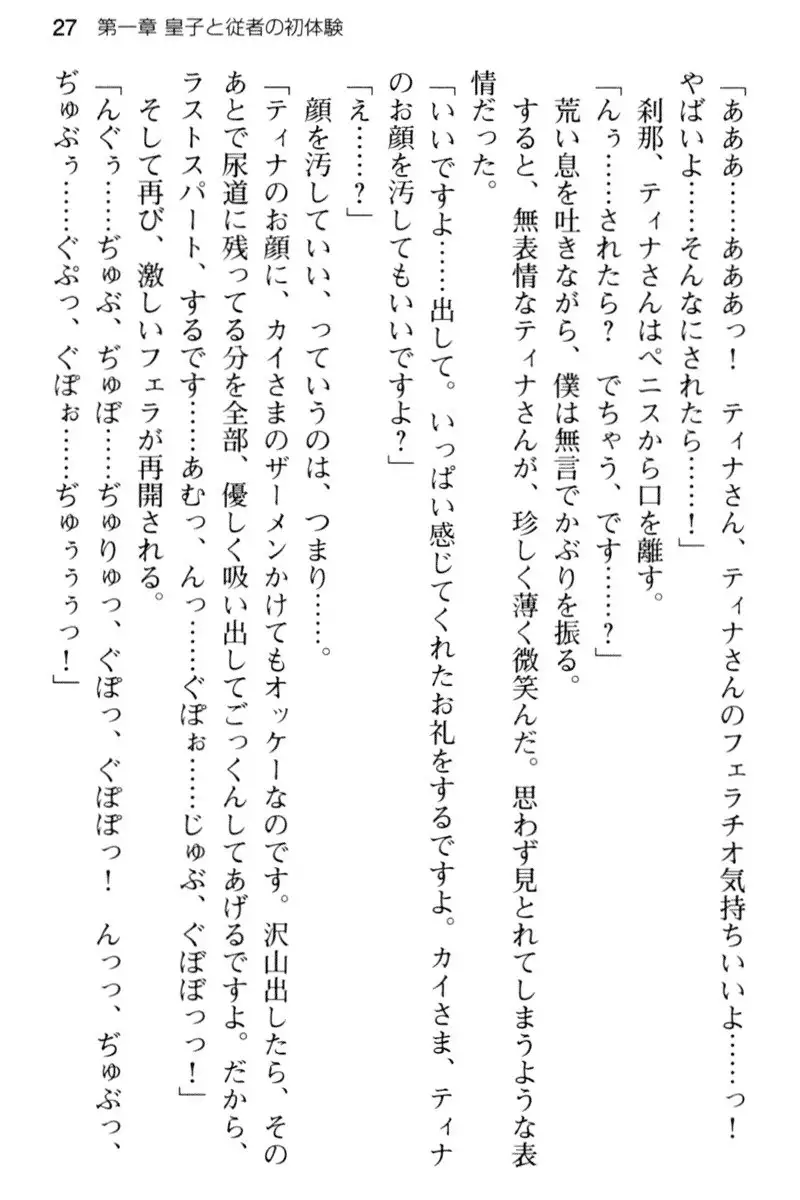 27 第一章 皇子と従者の初体験
「あああ……あああっ！　ティナさん、ティナさんのフェラチオ気持ちいいよ……っ！
やばいよ……そんなにされたら……！」
　刹那、ティナさんはペニスから口を離す。
「んぅ……されたら？　でちゃう、です……？」
　荒い息を吐きながら、僕は無言でかぶりを振る。
　すると、無表情なティナさんが、珍しく薄く微笑んだ。思わず見とれてしまうような表
情だった。
「いいですよ……出して。いっぱい感じてくれたお礼をするですよ。カイさま、ティナ
のお顔を汚してもいいですよ？」
「え……？」
　顔を汚していい、っていうのは、つまり……。
「ティナのお顔に、カイさまのザーメンかけてもオッケーなのです。沢山出したら、その
あとで尿道に残ってる分を全部、優しく吸い出してごっくんしてあげるですよ。だから、
ラストスパート、するです……あむっ、んっ……ぐぽぉ……じゅぶ、ぐぼぼっっ！」
　そして再び、激しいフェラが再開される。
「んぐぅ……ぢゅぶ、ぢゅぼ……ぢゅりゅっ、ぐぽっ、ぐぽぽっ！　んっっ、ぢゅぶっ、
ぢゅぶぅ……ぐぷっ、ぐぽぉ……ぢゅぅぅぅっ！」